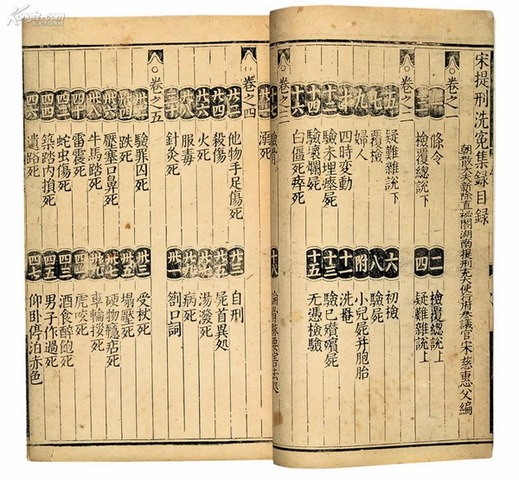 宋提刑洗冤集録目録
朝散大夫新除直祕閣湖南提刑充大使行府參議官宋慈惠父編
卷之一
條令
二 檢覆總説上
三 檢覆總説下
四 疑難雜説上
卷之二
五 疑難雜説下
六 初檢
七 覆檢
八 驗屍
九 婦人
附 小兒屍并胞胎
十 四時變動
十一 洗罨
十二 驗未埋瘞屍
十三 驗已殯殯屍
十四 驗壞爛屍
十五 无憑檢驗
十六 白僵死瘁死
卷之三
驗骨
十八 論骨脉要害去處
溺死
卷之四
廿二 他物手足傷死
廿三 自刑
廿四 殺傷
廿五 屍首異処
廿六 火死
廿七 湯潑死
廿八 服毒
廿九 病死
三十 針灸死
卅一 劄口詞
卷之五
卅二 驗罪囚死
卅三 受杖死
卅四 跌死
卅五 塌壓死
卅六 壓塞口鼻死
卅七 硬物癮痁死
卅八 牛馬踏死
卅九 車輪拶死
四十 雷震死
四一 虎咬死
四二 蛇虫傷死
四三 酒食醉飽死
四四 築踏内損死
四五 男子作過死
四六 遺路死
四七 仰卧停泊赤色